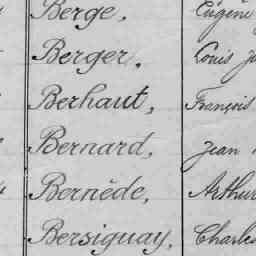 Berge, Eugène
Berger, Louis
Berhaut, François
Bernard, Jean
Bernède, Arthur
Bersiguay, Charles